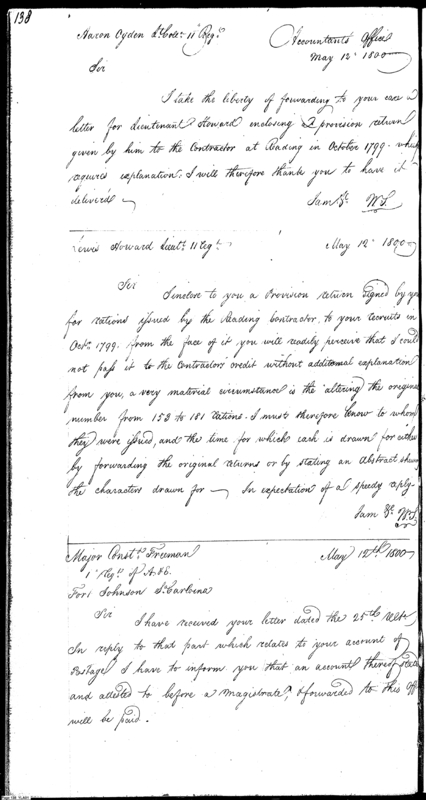 138
Aaron Ogden Lt. Colo. 11 Regt.
Accountants Office
May 12th 1800
Sir
I take the liberty of forwarding to your care a
letter for Lieutenant Howard enclosing a provision return
given by him to the Contractor at Reading in October 1799. which
requires explanation. I will therefore thank you to have it
delivered
I am &c. W.S.
Lewis Howard Lieut. 11 Regt.
May 12th 1800
Sir
I inclose to you a Provision return signed by you
for rations issued by the Reading Contractor, to your recruits in
Octr. 1799. from the face of it you will readily perceive that I could
not pass it to the Contractors credit without additional explanation
from you, a very material circumstance is the altering the original
number from 153 to 181 rations. I must therefore know to whom
they were issued, and the time for which each is drawn for either
by forwarding the original returns or by stating an Abstract shewing
the characters drawn for — In expectation of a speedy reply.
I am &c. W.S.
Major Constt. Freeman
May 12th 1800
1 Regt. of A. & E.
Fort Johnson So. Carolina
Sir
I have received your letter dated the 25th Ulto.
In reply to that part which relates to your account of
Postage I have to inform you that an account thereof stated
and attested to before a Magistrate, & forwarded to this Off
will be paid.